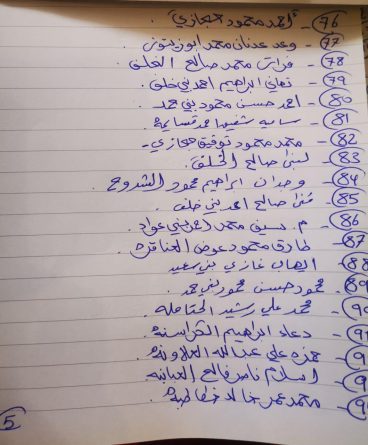 76 - أحمد محمود حجازي.
77 - وعد عدنان محمد أبو زيتون
78 - فراس محمد صالح الخلق
79 - تهاني ابراهيم احمد بني خلف.
80 - احمد حسن محمود بني حمد
81 - ساميه شفيق احمد قسايمه
82 - محمد محمود توفيق حجازي -
83 - لبنا صالح
84 - وجدان ابراهيم محمود الشدوح
85 - صالح احمد بني خلف.
86 - م. محمد احمد بني عواد
87 - طارق محمود عوض العناقره
88 ايهاب غازي بني سعيد
89 محمود حسن محمود بني حمد
9 محمد علي رشيد الحتامله
9 دعاء ابراهيم الكراسنه
9 حمزه علي عبدالله العلاونه
9 اسلام ناصر فالح العبابنه
9 محمد عمر خالد خطاطبه
5